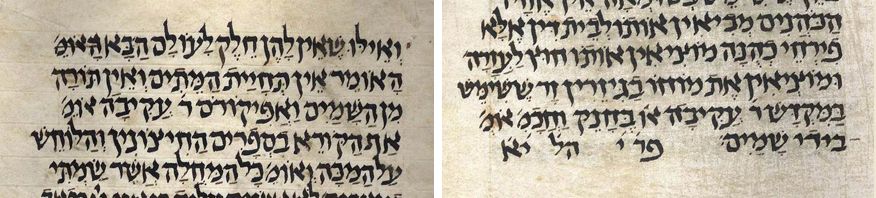 הכהנים מביאין אותו לבית דין אלא
פירחי כהנה מוציאין אותו חוץ לעזרה
ומוציאין את מוחו בגיזירין זר ששימש
במקדש ר' עקיבה או' בחנק וחכמ' אומ'
בידי שמים פר' י' הל' יא
ואילו שאין להן חלק לעולם הבא האומ'
האומר אין תחיית המתים ואין תורה
מן השמים ואפיקורס ר' עקיבה אומ'
את הקורא בספרים החיצונין והלוחש
על המכה ואומ' כל המחלה אשר שמתי